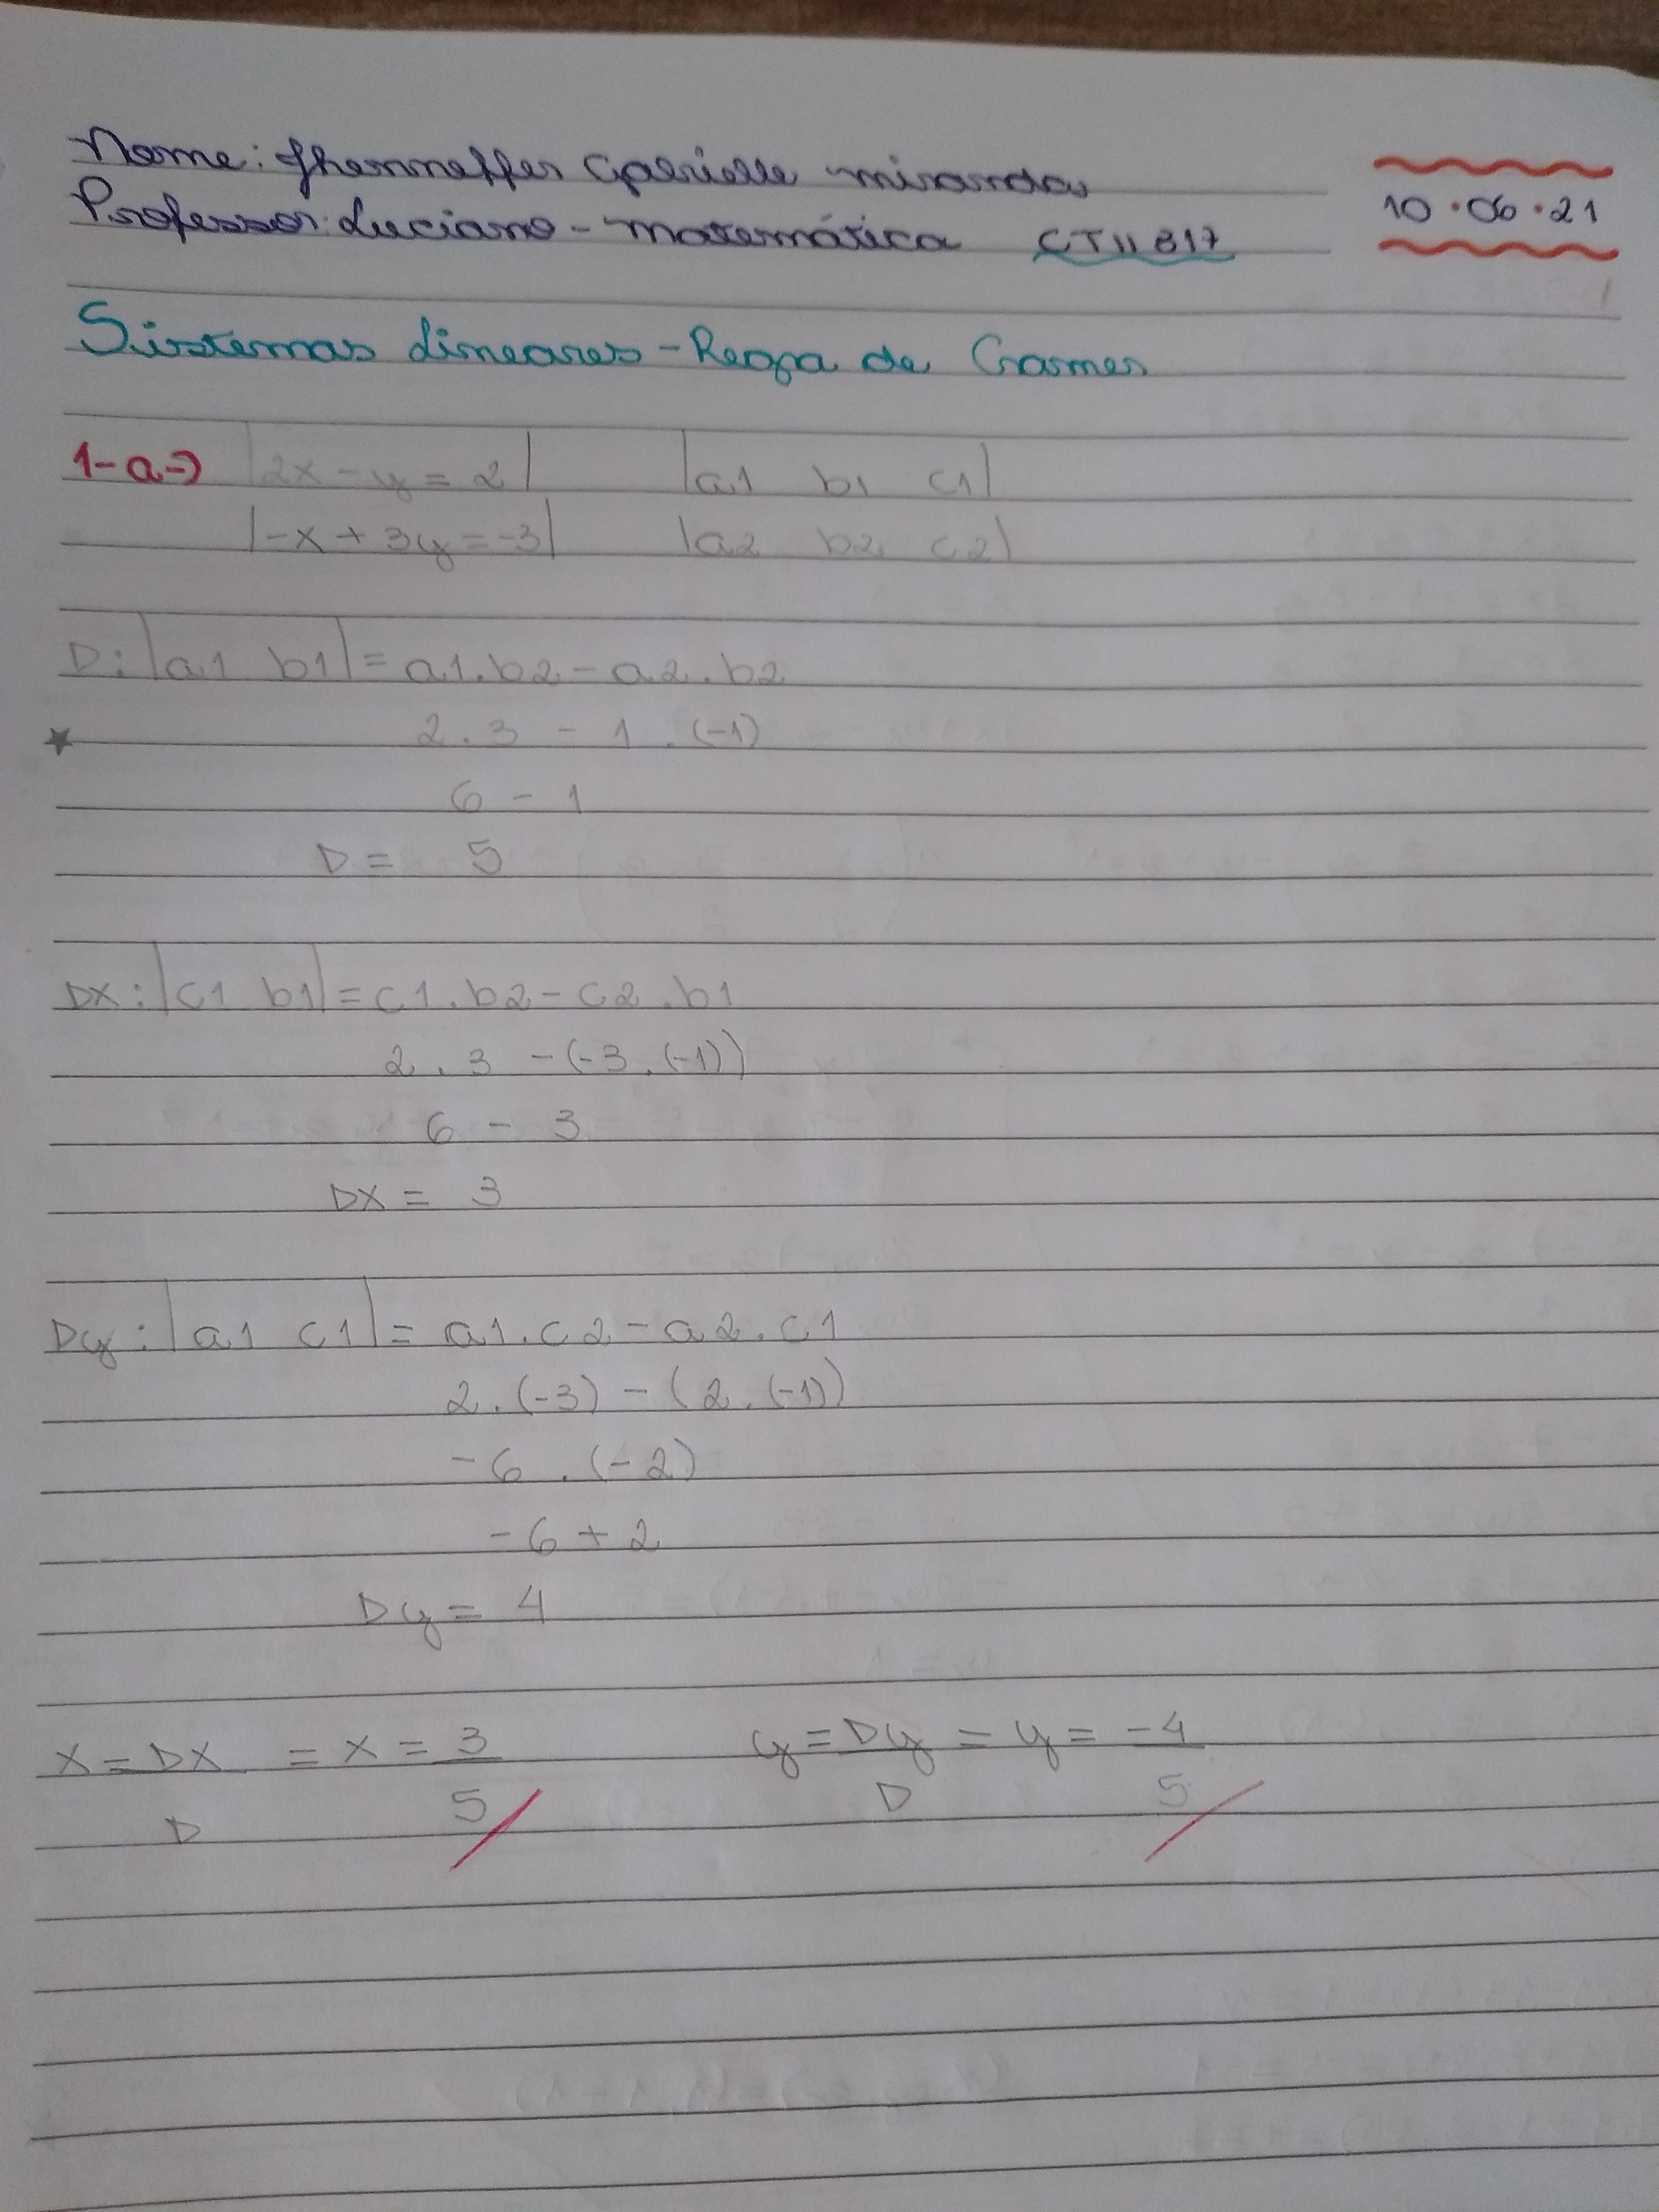 Nome: Jhenneffer Gabrielle miranda
Professor: Luciano - matemática CTII 317
10.06.21
Sistemas Lineares - Regra de Cramer
1-a→ |2x - y = 2| |a1 b1 c1|
|-x + 3y = -3| |a2 b2 c2|
D: |a1 b1| = a1.b2 - a2.b2
2.3 - 1.(-1)
6 - 1
D = 5
DX: |c1 b1| = c1.b2 - c2.b1
2.3 - (-3.(-1))
6 - 3
DX = 3
Dy: |a1 c1| = a1.c2 - a2.c1
2.(-3) - (2.(-1))
-6.(-2)
-6 + 2
Dy = 4
X = DX = X = 3 y = Dy = y = -4
D 5 D 5